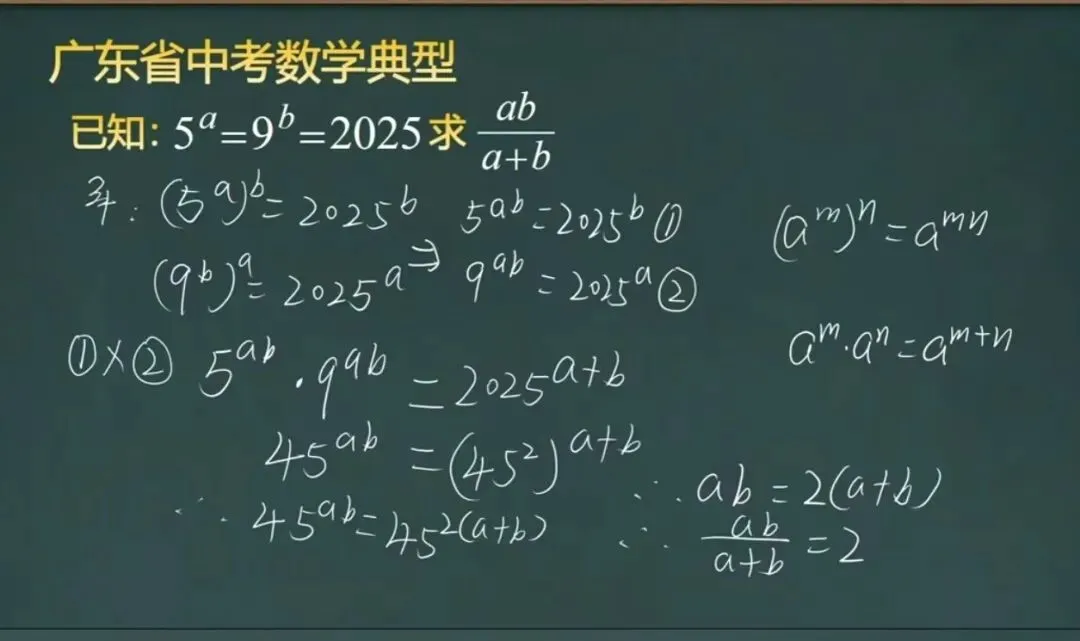 广东省中考数学典型
已知：5^a=9^b=2025求 ab/(a+b)
解：(5^a)^b=2025^b 5^{ab}=2025^b①
(9^b)^a=2025^a⇒ 9^{ab}=2025^a②
(a^m)^n=a^{mn}
a^m·a^n=a^{m+n}
①×② 5^{ab}·9^{ab}=2025^{a+b}
45^{ab}=(45^2)^{a+b}
∴45^{ab}=45^{2(a+b)}
∴ab=2(a+b)
∴ab/(a+b)=2